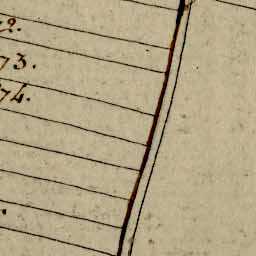 73.
74.